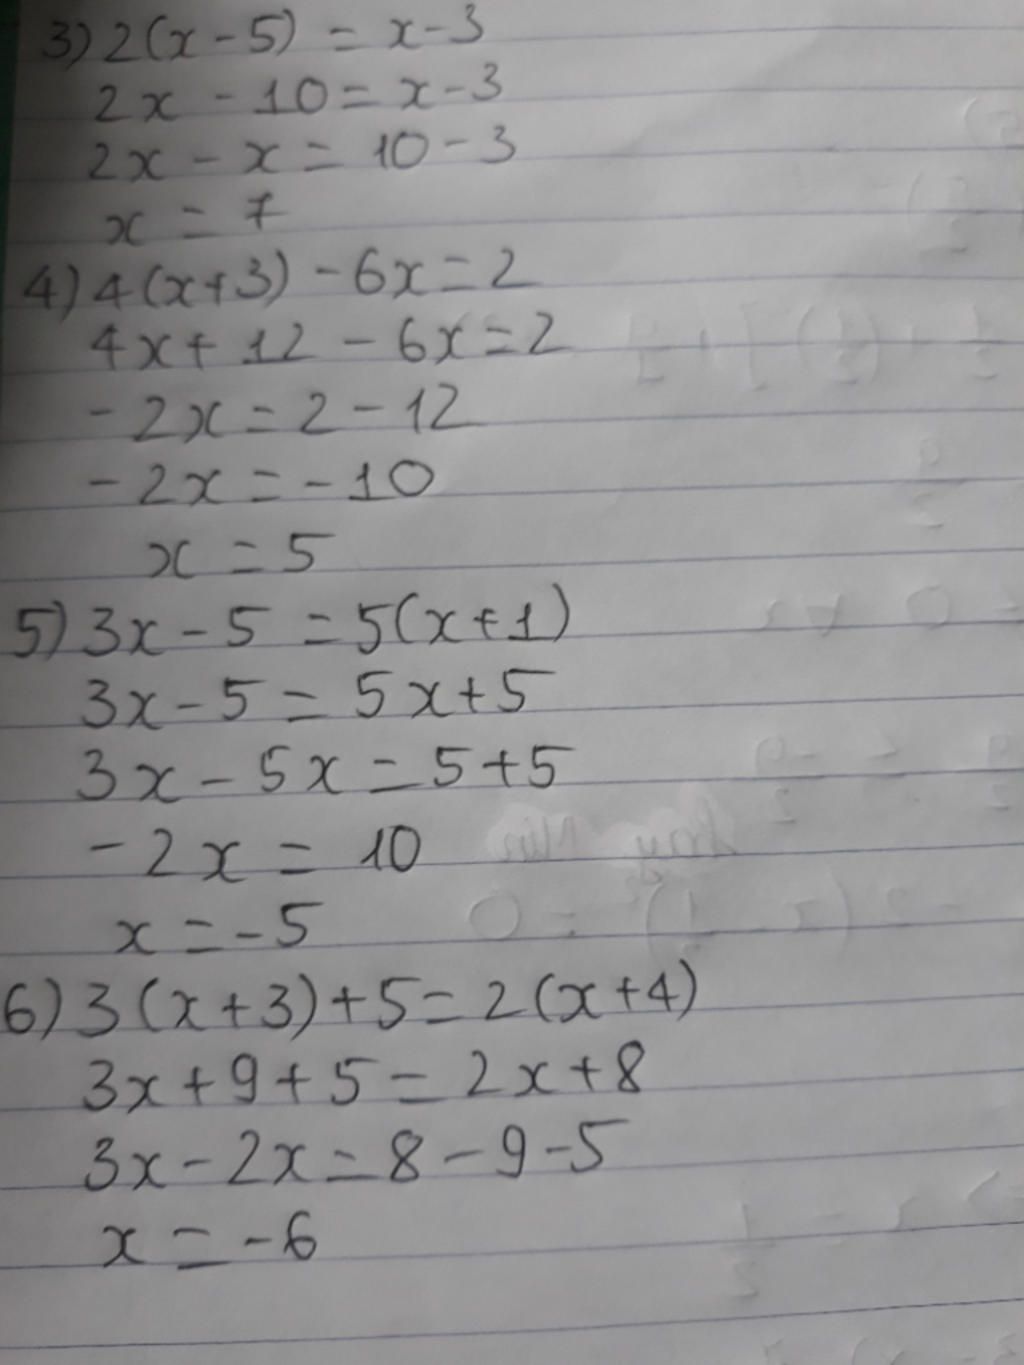 3) 2(x-5) = x-3
2x - 10 = x-3
2x - x = 10-3
x = 7
4) 4(x+3) - 6x = 2
4x + 12 - 6x = 2
-2x = 2-12
-2x = -10
x = 5
5) 3x-5 = 5(x+1)
3x-5 = 5x+5
3x-5x = 5+5
-2x = 10
x = -5
6) 3(x+3)+5 = 2(x+4)
3x+9+5 = 2x+8
3x-2x = 8-9-5
x = -6